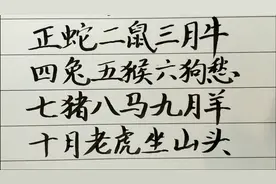 正蛇二鼠三月牛
四兔五猴六狗愁
七猪八马九月羊
十月老虎坐山头